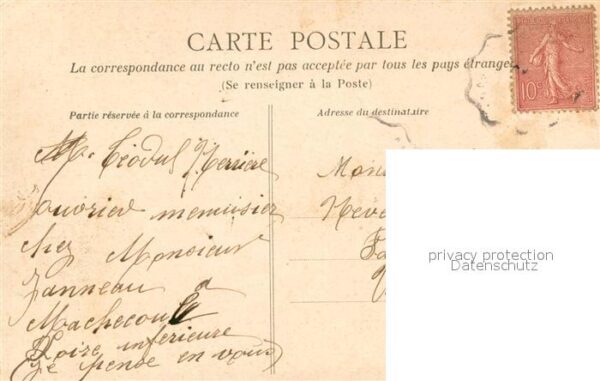 CARTE POSTALE
La correspondance au recto n'est pas acceptée par tous les pays étrange
(Se renseigner à la Poste)
Partie réservée à la correspondance
Adresse du destinataire
10c
Mr. Téodul Herriere
ouvrier menuisier
chez Monsieur
Janneau à
Machecoul
Loire inférieure
je pense en vous
Mon
Neve
privacy protection
Datenschutz